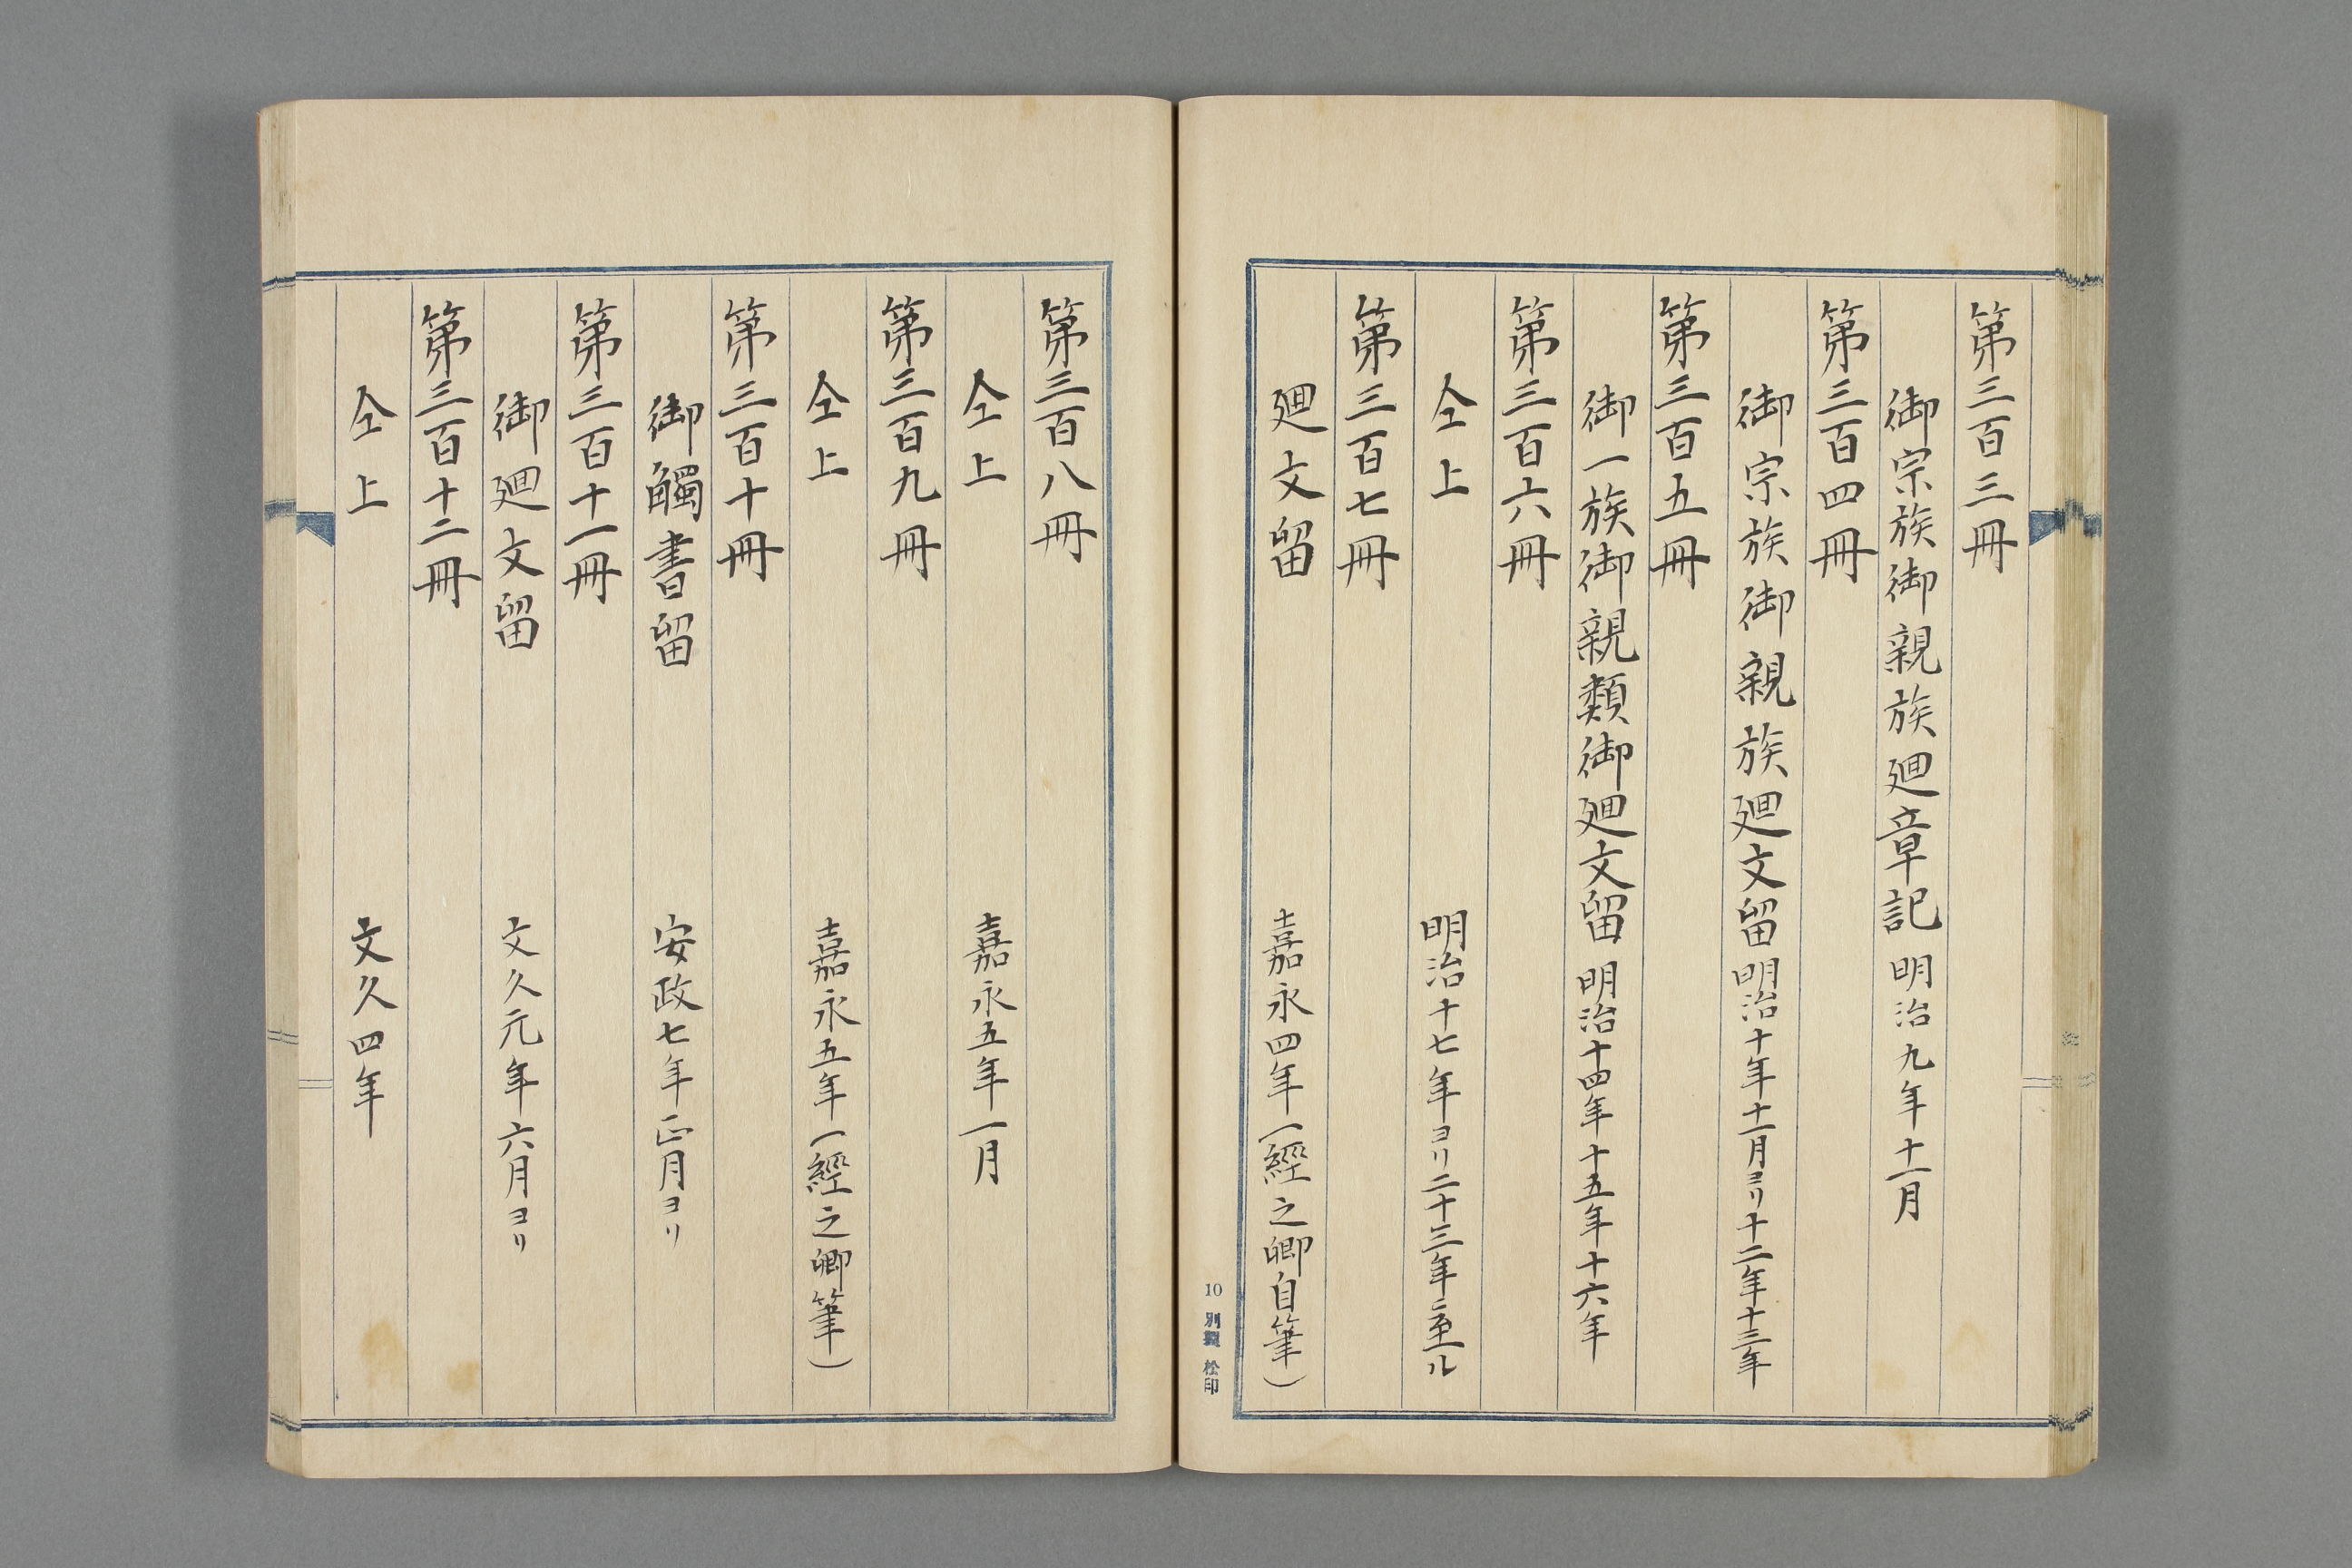 第三百三冊
御宗族御親族廻章記 明治九年十一月
第三百四冊
御宗族御親族廻文留 明治十年十一月ヨリ十二年十三年
第三百五冊
御一族御親類御廻文留 明治十四年十五年十六年
第三百六冊
仝上 明治十七年ヨリ二十三年ニ至ル
第三百七冊
廻文留 嘉永四年(經之卿自筆)
10 別製 松印
第三百八冊
仝上 嘉永五年一月
第三百九冊
仝上 嘉永五年(經之卿筆)
第三百十冊
御觸書留 安政七年正月ヨリ
第三百十一冊
御廻文留 文久元年六月ヨリ
第三百十二冊
仝上 文久四年